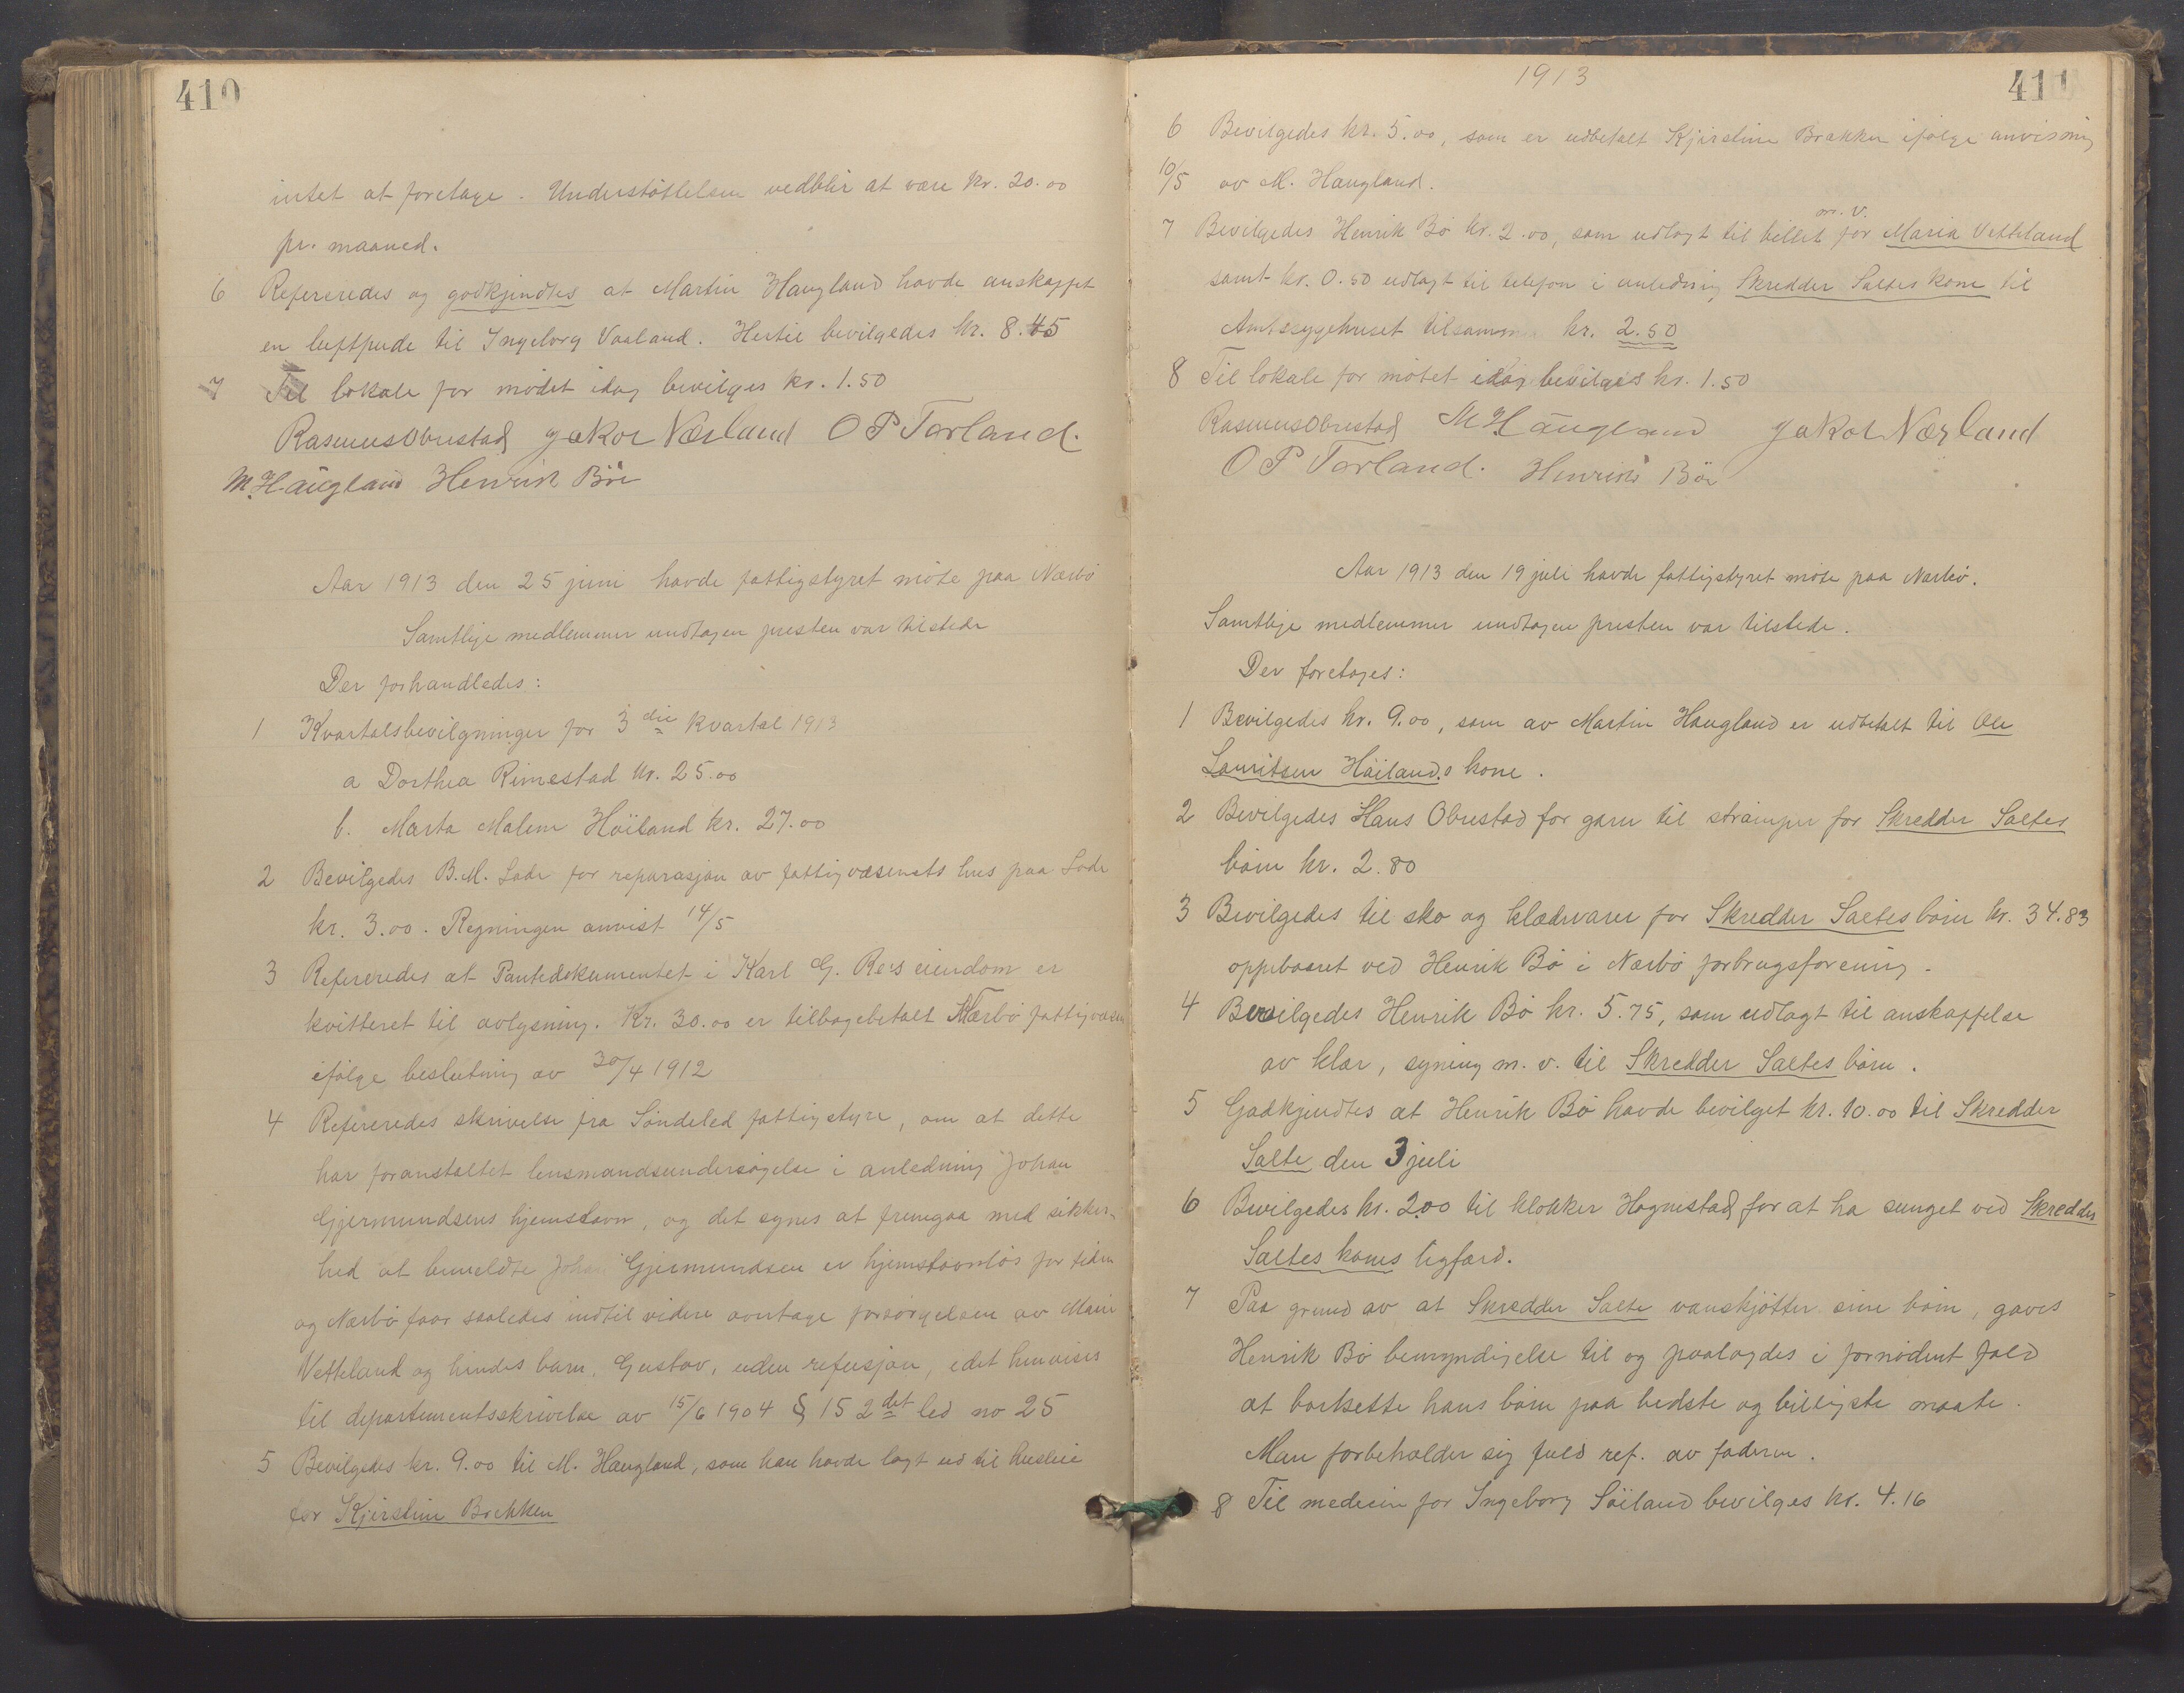 410
intet at foretage. Understøttelsen vedblir at være kr. 20.00
pr. maaned.
6 Refereredes og godkjendtes at Martin Haugland havde anskaffet
en luftpude til Ingeborg Vaaland. Hertil bevilgedes kr. 8.45
7 Til lokale for mødet idag bevilges kr. 1.50
Rasmus Obrestad Jakob Nærland O P Torland.
M. Haugland Henrik Bö
Aar 1913 den 25 juni havde fattigstyret möte paa Nærbö
Samtlige medlemmer undtagen presten var tilstede
Der forhandledes:
1 Kvartalsbevilgninger for 3die kvartal 1913
a Dorthea Rimestad kr. 25.00
b. Marta Malene Höiland kr. 27.00
2 Bevilgedes B.M. Lode for reparasjon av fattigvæsenets hus paa Lode
kr. 3.00. Regningen anvist 14/5
3 Refereredes at Pantedokumentet i Karl G. Re's eiendom er
kvitteret til avlysning. Kr. 30.00 er tilbagebetalt Nærbö fattigvæsen
ifölge beslutning av 30/4 1912
4 Refereredes skrivelse fra Söndeled fattigstyre, om at dette
har foranstaltet lensmandsundersögelse i anledning Johan
Gjermundsens hjemstavn, og det synes at fremgaa med sikker-
hed at bemeldte Johan Gjermundsen er hjemstavnlös for tiden
og Nærbö faar saaledes indtil videre overtage forsörgelsen av Marie
Vetteland og hendes barn, Gustav, uden refusjon, idet henvises
til departementsskrivelse av 15/6 1904 § 15 2det led no 25
5 Bevilgedes kr. 9.00 til M. Haugland, som han havde lagt ud til husleie
for Kjirstine Brekken
1913
411
6 Bevilgedes kr. 5.00, som er udbetalt Kjirstine Brækken ifölge anvisning
10/5 av M. Haugland.
7 Bevilgedes Henrik Bö kr. 2.00, som udlagt til billet m. v. for Maria Vetteland
samt kr. 0.50 udlagt til telefon i anledning Skredder Saltes kone til
Amtssygehuset tilsammen kr. 2.50
8 Til lokale for mötet idag bevilges kr. 1.50
Rasmus Obrestad M Haugland Jakob Nærland
O P Torland. Henrik Bö
Aar 1913 den 19 juli havde fattigstyret möte paa Nærbö.
Samtlige medlemmer undtagen presten var tilstede.
Der foretoges:
1 Bevilgedes kr. 9.00, som av Martin Haugland er udbetalt til Ole
Lauritsen Höilands kone.
2 Bevilgedes Hans Obrestad for garn til strömper for Skredder Saltes
börn kr. 2.80
3 Bevilgedes til sko og klædevarer for Skredder Saltes börn kr. 34.83
oppebaaret ved Henrik Bö i Nærbö forbrugsforening.
4 Bevilgedes Henrik Bö kr. 5.75, som udlagt til anskaffelse
av klær, syning m. v. til Skredder Saltes börn.
5 Godkjendtes at Henrik Bö havde bevilget kr. 10.00 til Skredder
Salte den 3 juli
6 Bevilgedes kr. 2.00 til klokker Hognestad for at ha sunget ved Skredder
Saltes kones ligfærd.
7 Paa grund av at Skredder Salte vanskjötter sine börn, gaves
Henrik Bö bemyndigelse til og paalagdes i fornödent fald
at bortsette hans börn paa bedste og billigste maate.
Man forbeholder sig fuld ref. av faderen.
8 Til medicin for Ingeborg Söiland bevilges kr. 4.16